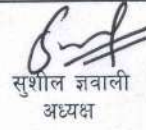 सुशील ज्ञवाली
अध्यक्ष